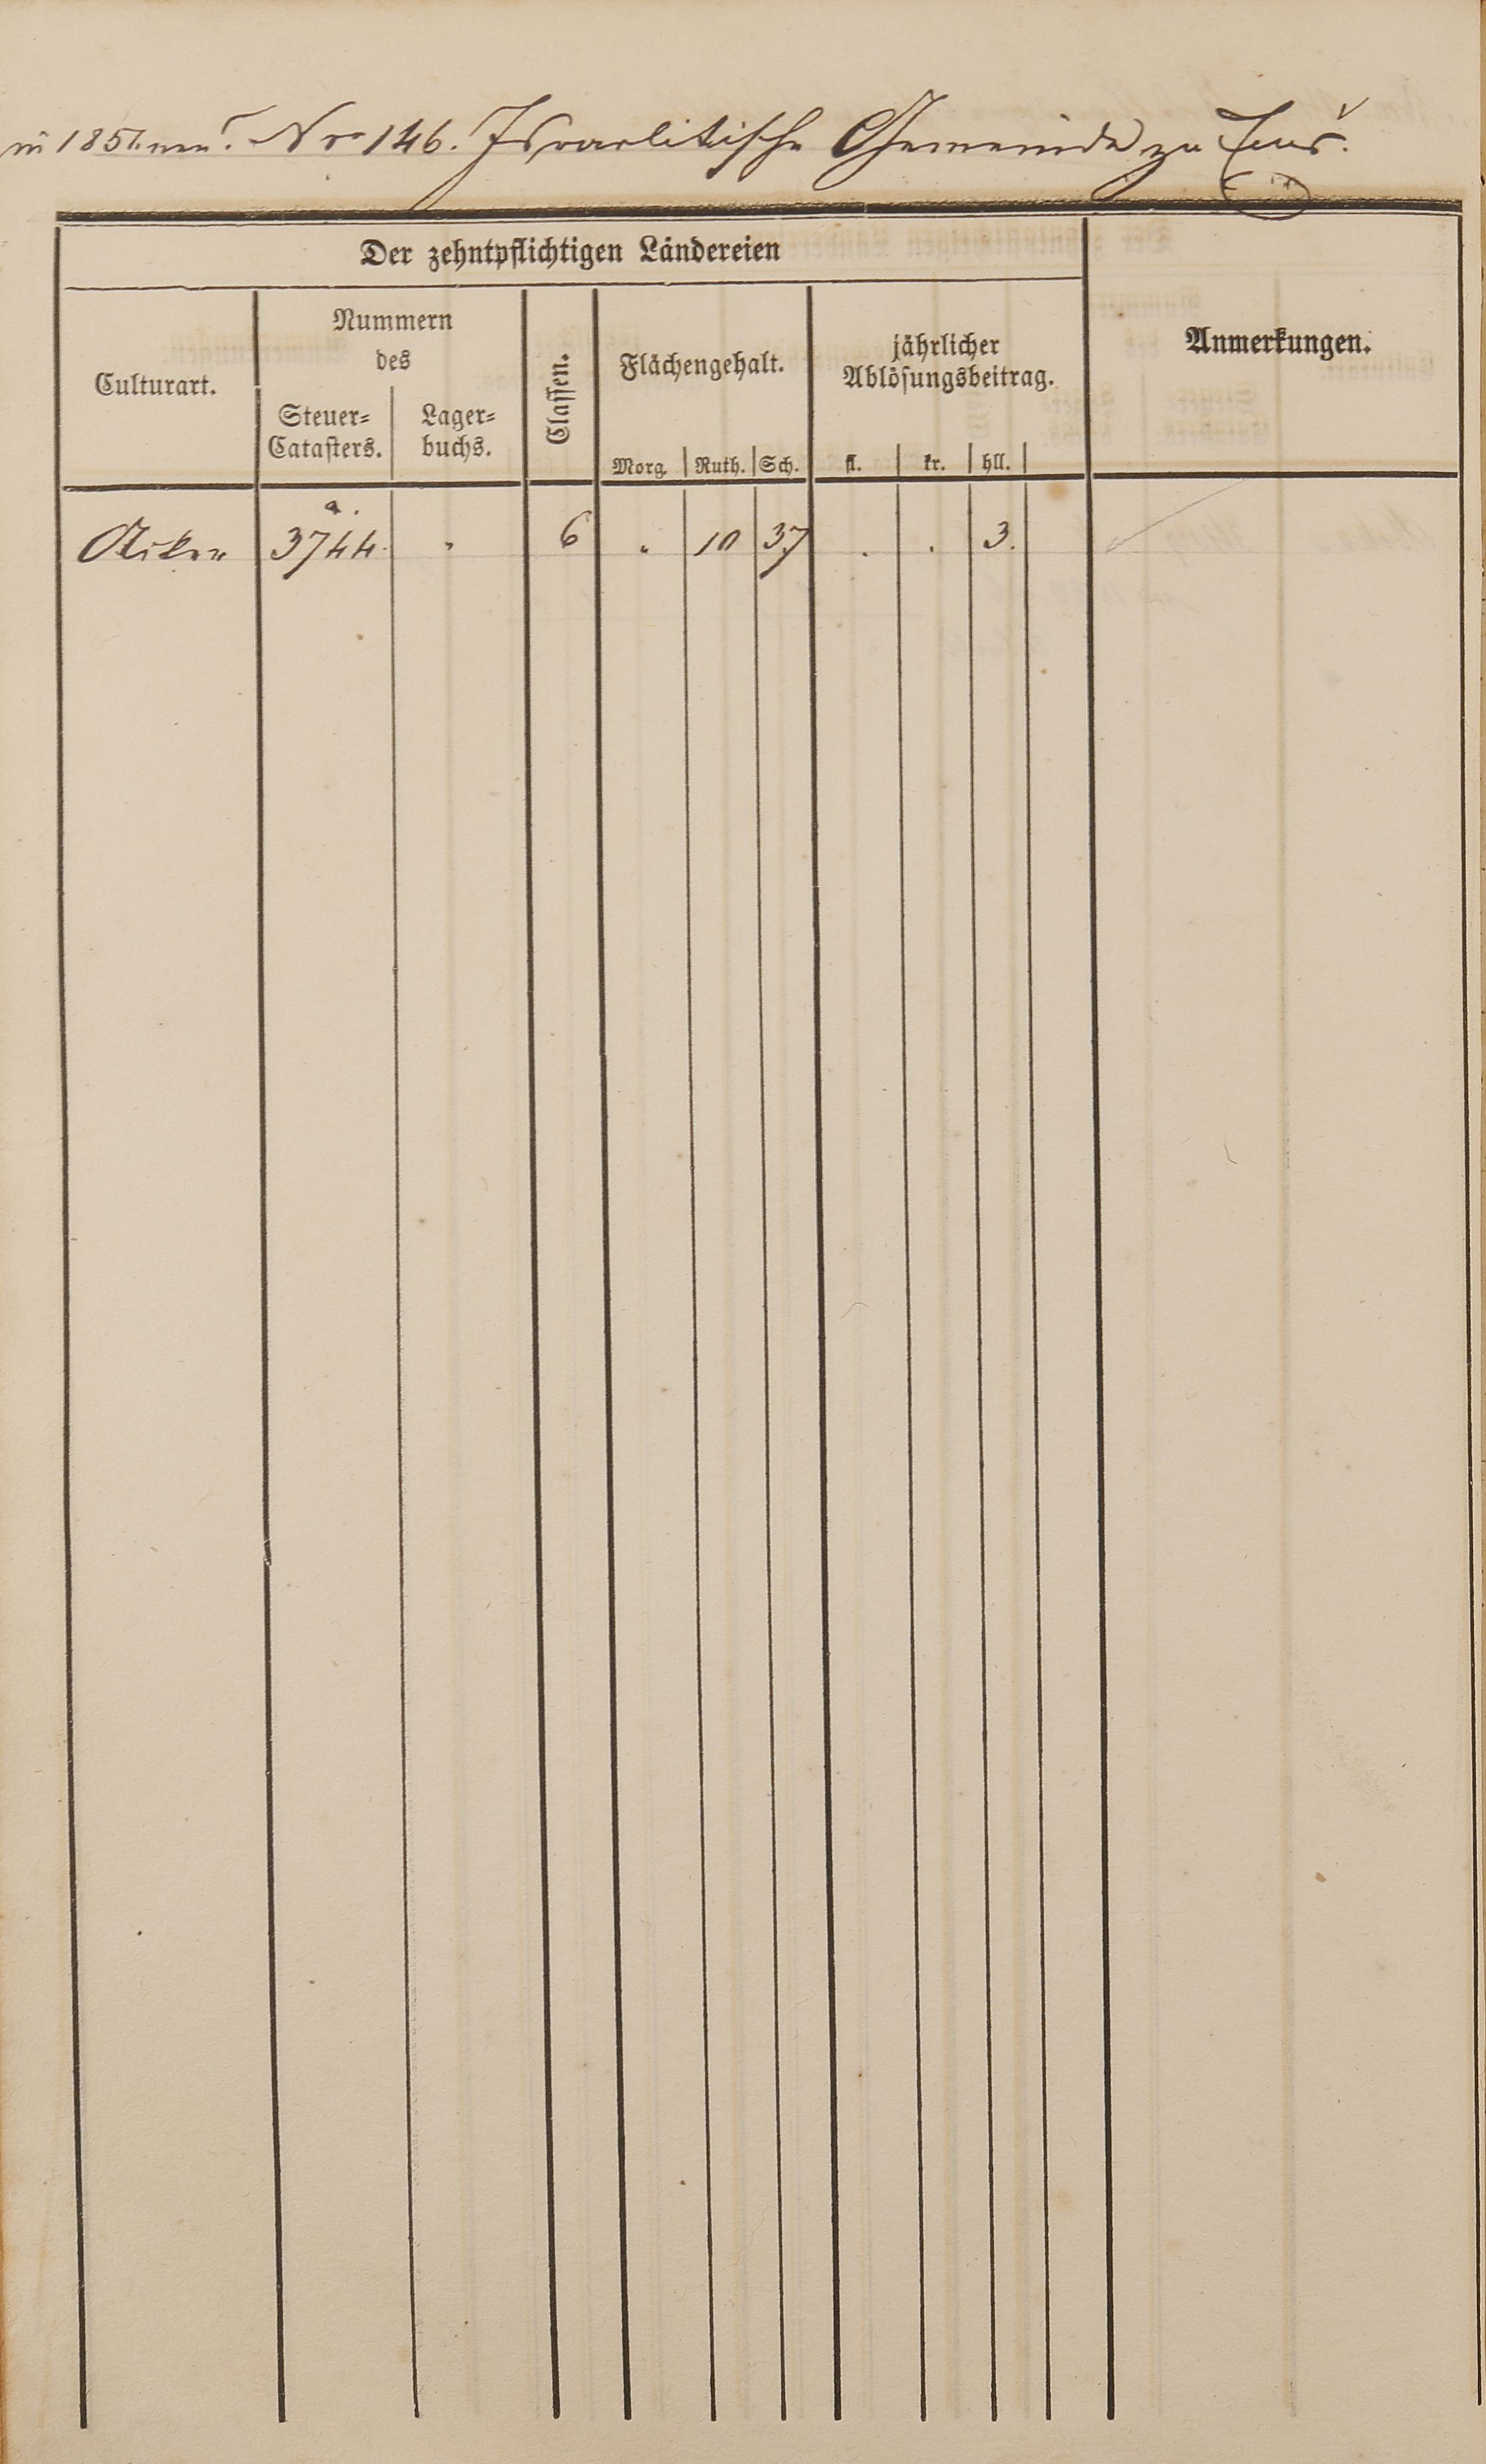 in 1851. neu. Nro 146. Israelitische Gemeinde zu Ems.
Der zehntpflichtigen Ländereien
Culturart.
Nummern
des
Steuer=
Catasters.
Lager=
buchs.
Classen.
Flächengehalt.
Morg. Ruth. Sch.
jährlicher
Ablösungsbeitrag.
fl. kr. hll.
Anmerkungen.
a.
Acker 3744. " 6 " 10 37 . . 3.